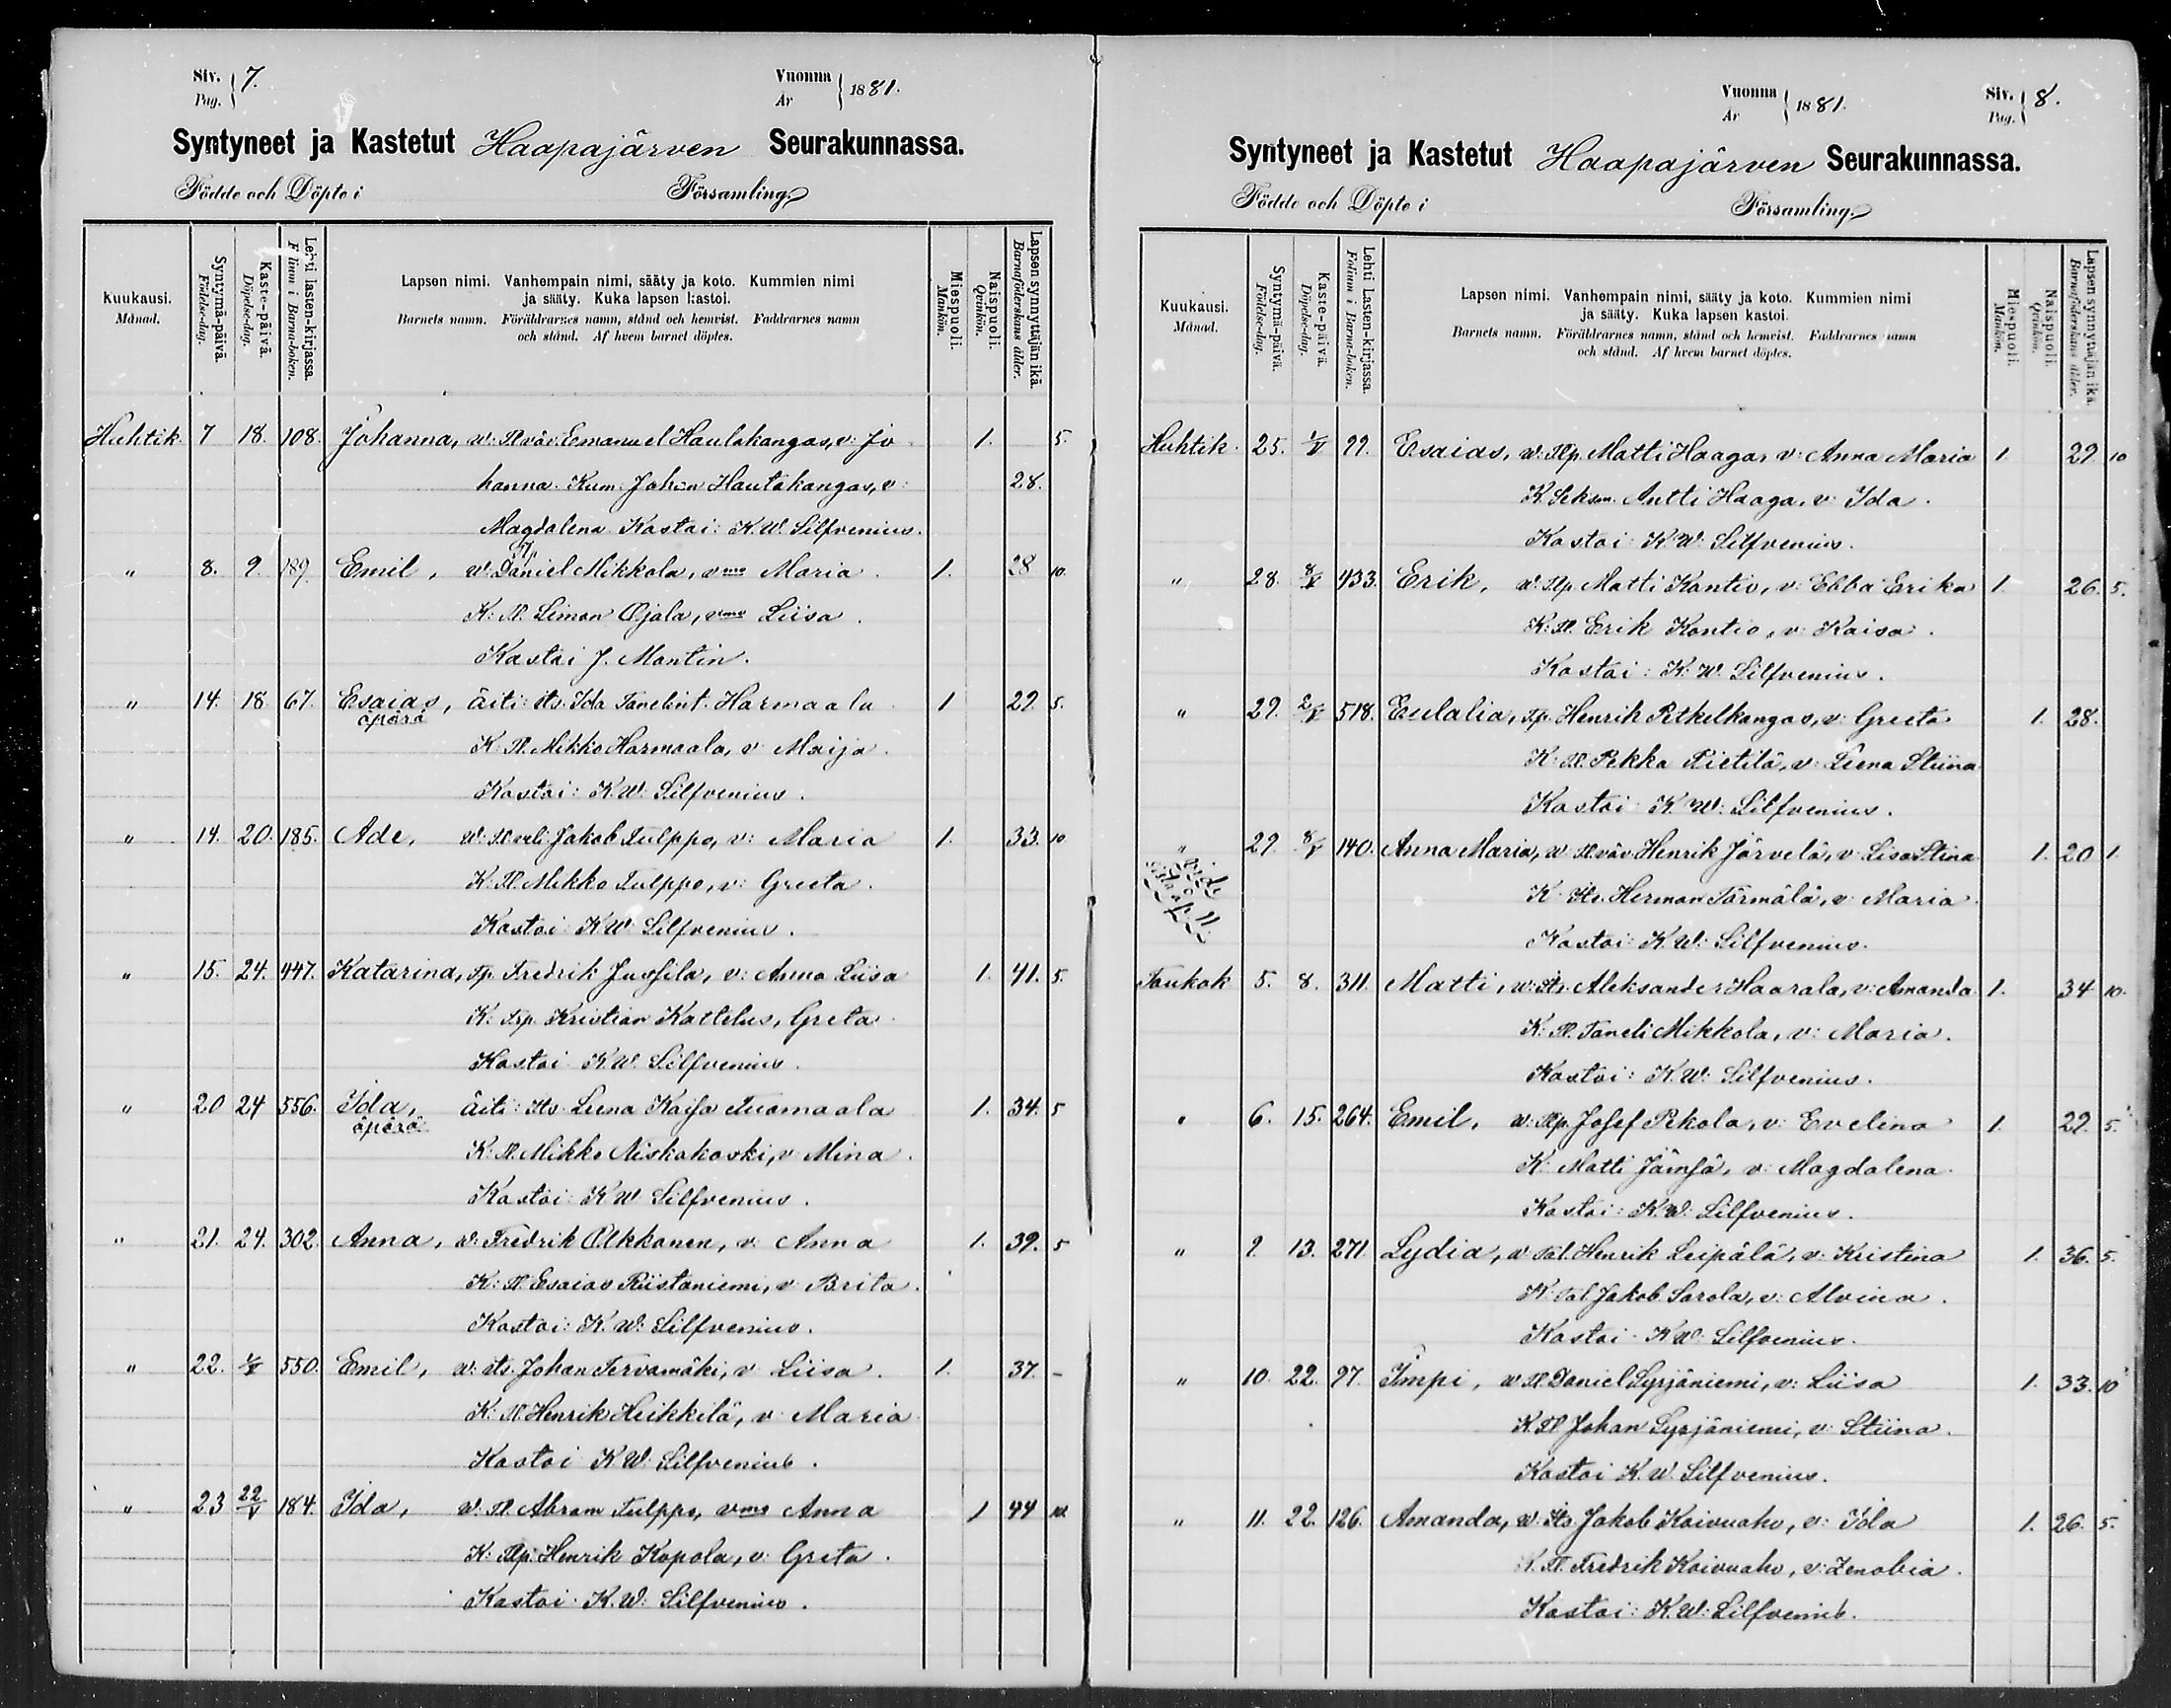 Siv. 7.
Pag.
Vuonna 1881.
År
Syntyneet ja Kastetut Haapajärven Seurakunnassa.
Födde och Döpte i Församling
Kuukausi.
Månad.
Syntymä-päivä.
Födelse-dag.
Kaste-päivä.
Döpelse-dag.
Lehti lasten-kirjassa.
Folium i Barna-boken.
Lapsen nimi. Vanhempain nimi, sääty ja koto. Kummien nimi
ja sääty. Kuka lapsen kastoi.
Barnets namn. Föräldrarnes namn, stånd och hemvist. Faddrarnes namn
och stånd. Af hvem barnet döptes.
Miespuoli.
Mankön.
Naispuoli.
Qvinkön.
Lapsen synnyttäjän ikä.
Barnaföderskans ålder.
Huhtik. 7 18. 108. Johanna, w: Tl.väv. Emanuel Hautakangas, v: Jo 1. 5.
hanna. Kum. Johan Hautakangas, v: 28.
Magdalena. Kastai: K.W. Silfvenius.
" 8. 9. 189 Emil, w: Tl. Daniel Mikkola, vmo Maria. 1. 28 10.
K: Tl. Simon Ojala, vmo Liisa.
Kastai J. Montin.
" 14. 18. 67. Esaias, äiti: its. Ida Tanelint. Harmaala 1 29. 5.
äpärä
K. Tl. Mikko Harmaala, v: Maija.
Kastoi: K.W. Silfvenius.
" 14. 20. 185. Ade, w: Tl. veli Jakob Tulppo, v: Maria 1. 33. 10
K: Tl. Mikko Tulppo, v: Greeta.
Kastoi K.W. Silfvenius.
" 15. 24. 447. Katarina, Tp. Fredrik Jussila, v: Anna Liisa 1. 41. 5.
K: Kristian Kattelus, Greta.
Kastoi K.W. Silfvenius.
" 20 24 556. Ida, äiti: its. Leena Kaisa Tuomaala 1. 34. 5
äpärä
K: Tl. Mikko Niskakoski, v: Mina.
Kastoi: K.W. Silfvenius.
" 21. 24. 302. Anna, w: Fredrik Olkkonen, v: Anna 1. 39. 5
K: Tl. Esaias Ristaniemi, v: Brita.
Kastoi: K.W. Silfvenius.
" 22. 1/V 550. Emil, w: its. Johan Tervamäki, v: Liisa. 1. 37. -
K: Tl. Henrik Heikkilä, v: Maria
Kastoi K.W. Silfvenius.
" 23 22/V 184. Ida, w. Tl. Abram Tulppo, vmo Anna 1 44 10.
K: Tlp. Henrik Kopola, v: Greta.
Kastoi K.W. Silfvenius.
Vuonna 1881.
År
Siv. 8.
Pag.
Syntyneet ja Kastetut Haapajärven Seurakunnassa.
Födde och Döpte i Församling
Kuukausi.
Månad.
Syntymä-päivä.
Födelse-dag.
Kaste-päivä.
Döpelse-dag.
Lehti Lasten-kirjassa.
Folium i Barna-boken.
Lapsen nimi. Vanhempain nimi, sääty ja koto. Kummien nimi
ja sääty. Kuka lapsen kastoi.
Barnets namn. Föräldrarnes namn, stånd och hemvist. Faddrarnes namn
och stånd. Af hvem barnet döptes.
Miespuoli.
Mankön.
Naispuoli.
Qvinkön.
Lapsen synnyttäjän ikä.
Barnaföderskans ålder.
Huhtik. 25. 1/V 99. Esaias, w: Tlp. Matti Haaga, v: Anna Maria 1. 29 10
K. Antti Haaga, v: Ida.
Kastoi K.W. Silfvenius.
" 28. 8/V 433. Erik, w: Tlp. Matti Kontio, v: Ebba Erika 1. 26. 5.
K: Tl. Erik Kontio, v: Kaisa.
Kastoi: K.W. Silfvenius.
" 29. 2/V 518. Eulalia, Tp. Henrik Petkelkangas, v: Greeta 1. 28.
K: Tl. Pekka Pietilä, v: Leena Stiina
Kastoi K.W. Silfvenius.
" 29. 8/V 140. Anna Maria, w. Tl.väv. Henrik Järvelä, v: Lisa Stina 1. 20 1.
vide
sista på
p. 11.
K: its. Herman Törmälä, v: Maria.
Kastoi: K.W. Silfvenius.
Toukok 5. 8. 311. Matti, w: its. Aleksander Haarala, v: Amanda 1. 34 10.
K: Tl. Taneli Mikkola, v: Maria.
Kastoi: K.W. Silfvenius.
" 6. 15. 264. Emil, w: Tlp. Josef Pekola, v: Evelina 1. 29. 5.
K: Matti Jämsä, v: Magdalena.
Kastoi: K.W. Silfvenius.
" 9. 13. 271. Lydia, w. Tal. Henrik Leipälä, v: Kristina 1. 36. 5.
K. Tal. Jakob Sarola, v: Alvina.
Kastoi K.W. Silfvenius.
" 10. 22. 97. Impi, w Tl. Daniel Syrjäniemi, v: Liisa 1. 33. 10
K. Tl. Johan Syrjäniemi, v: Stiina.
Kastoi K.W. Silfvenius.
" 11. 22. 126. Amanda, w. its. Jakob Koivuaho, v: Ida 1. 26. 5.
K. Tl. Fredrik Koivuaho, v: Zenobia.
Kastoi: K.W. Silfvenius.